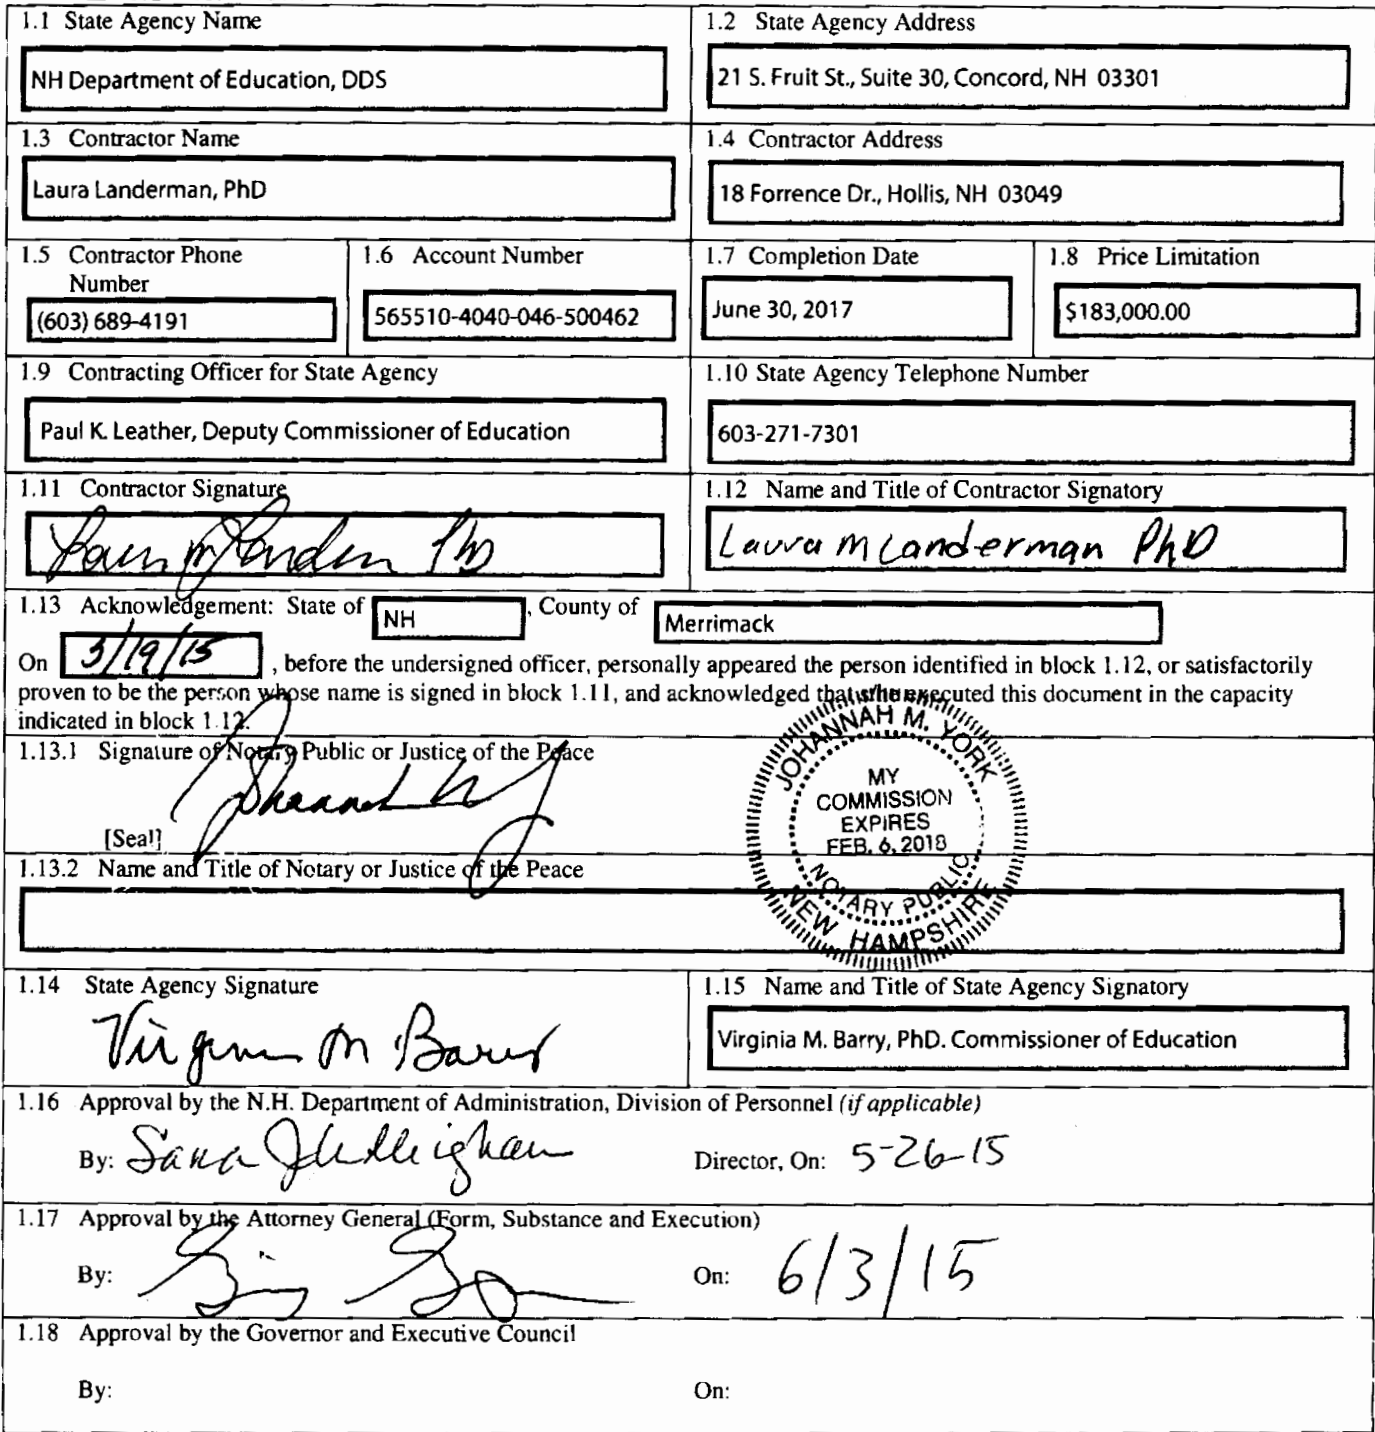 1.1 State Agency Name
NH Department of Education, DDS
1.2 State Agency Address
21 S. Fruit St., Suite 30, Concord, NH 03301
1.3 Contractor Name
Laura Landerman, PhD
1.4 Contractor Address
18 Forrence Dr., Hollis, NH 03049
1.5 Contractor Phone
Number
(603) 689-4191
1.6 Account Number
565510-4040-046-500462
1.7 Completion Date
June 30, 2017
1.8 Price Limitation
$183,000.00
1.9 Contracting Officer for State Agency
Paul K. Leather, Deputy Commissioner of Education
1.10 State Agency Telephone Number
603-271-7301
1.11 Contractor Signature
1.12 Name and Title of Contractor Signatory
Laura M Landerman PhD
1.13 Acknowledgement: State of NH, County of Merrimack
On /19/15, before the undersigned officer, personally appeared the person identified in block 1.12, or satisfactorily
proven to be the person whose name is signed in block 1.11, and acknowledged that s/he executed this document in the capacity
indicated in block 1.12.
1.13.1 Signature of Notary Public or Justice of the Peace
[Seal]
JOHANNAH M. YORK
MY
COMMISSION
EXPIRES
FEB. 6, 2018
NOTARY PUBLIC
NEW HAMPSHIRE
1.13.2 Name and Title of Notary or Justice of the Peace
1.14 State Agency Signature
Virginia M Barry
1.15 Name and Title of State Agency Signatory
Virginia M. Barry, PhD. Commissioner of Education
1.16 Approval by the N.H. Department of Administration, Division of Personnel (if applicable)
By: Sara Director, On: 5-26-15
1.17 Approval by the Attorney General (Form, Substance and Execution)
By: On: 6/3/15
1.18 Approval by the Governor and Executive Council
By: On: